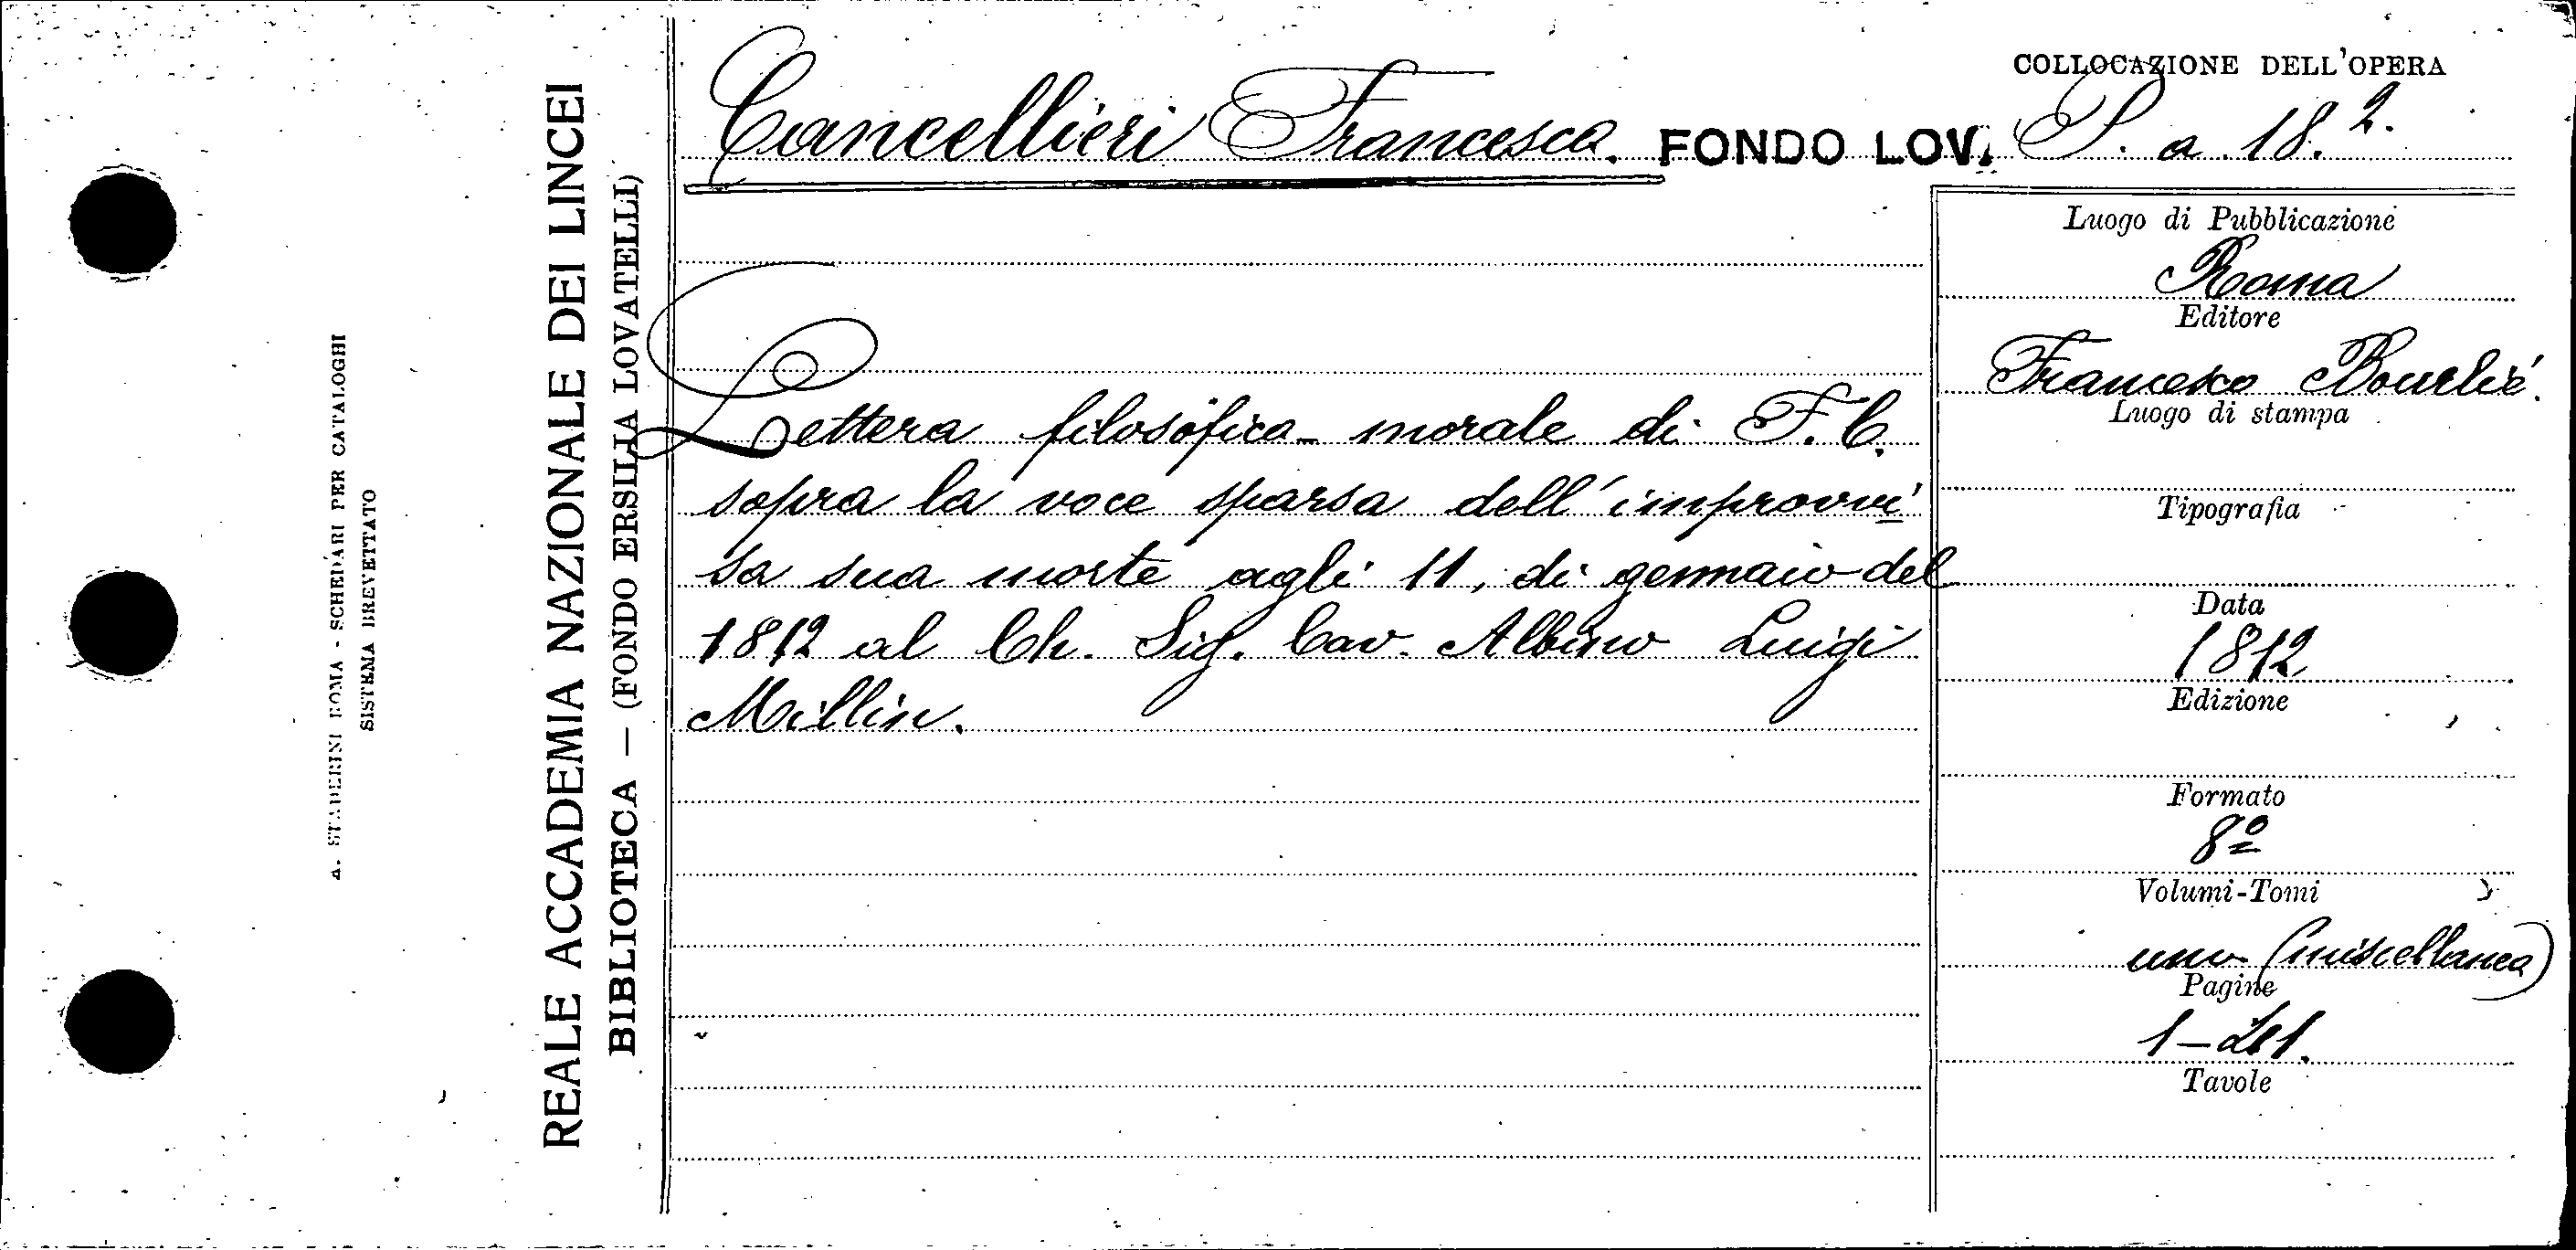 A. STADERINI ROMA - SCHEDARI PER CATALOGHI
SISTEMA BREVETTATO
REALE ACCADEMIA NAZIONALE DEI LINCEI
BIBLIOTECA — (FONDO ERSILIA LOVATELLI)
Cancellieri Francesco. FONDO LOV.
COLLOCAZIONE DELL'OPERA
S. a. 18. 2.
Lettera filosofica-morale di F. C.
sopra la voce sparsa dell'improvvi
sa sua morte agli 11, di gennaio del
1812 al Ch. Sig. Cav. Albino Luigi
Millin.
Luogo di Pubblicazione
Roma
Editore
Francesco Bourlié.
Luogo di stampa
Tipografia
Data
1812
Edizione
Formato
8º
Volumi-Tomi
uno (miscellanea)
Pagine
Tavole